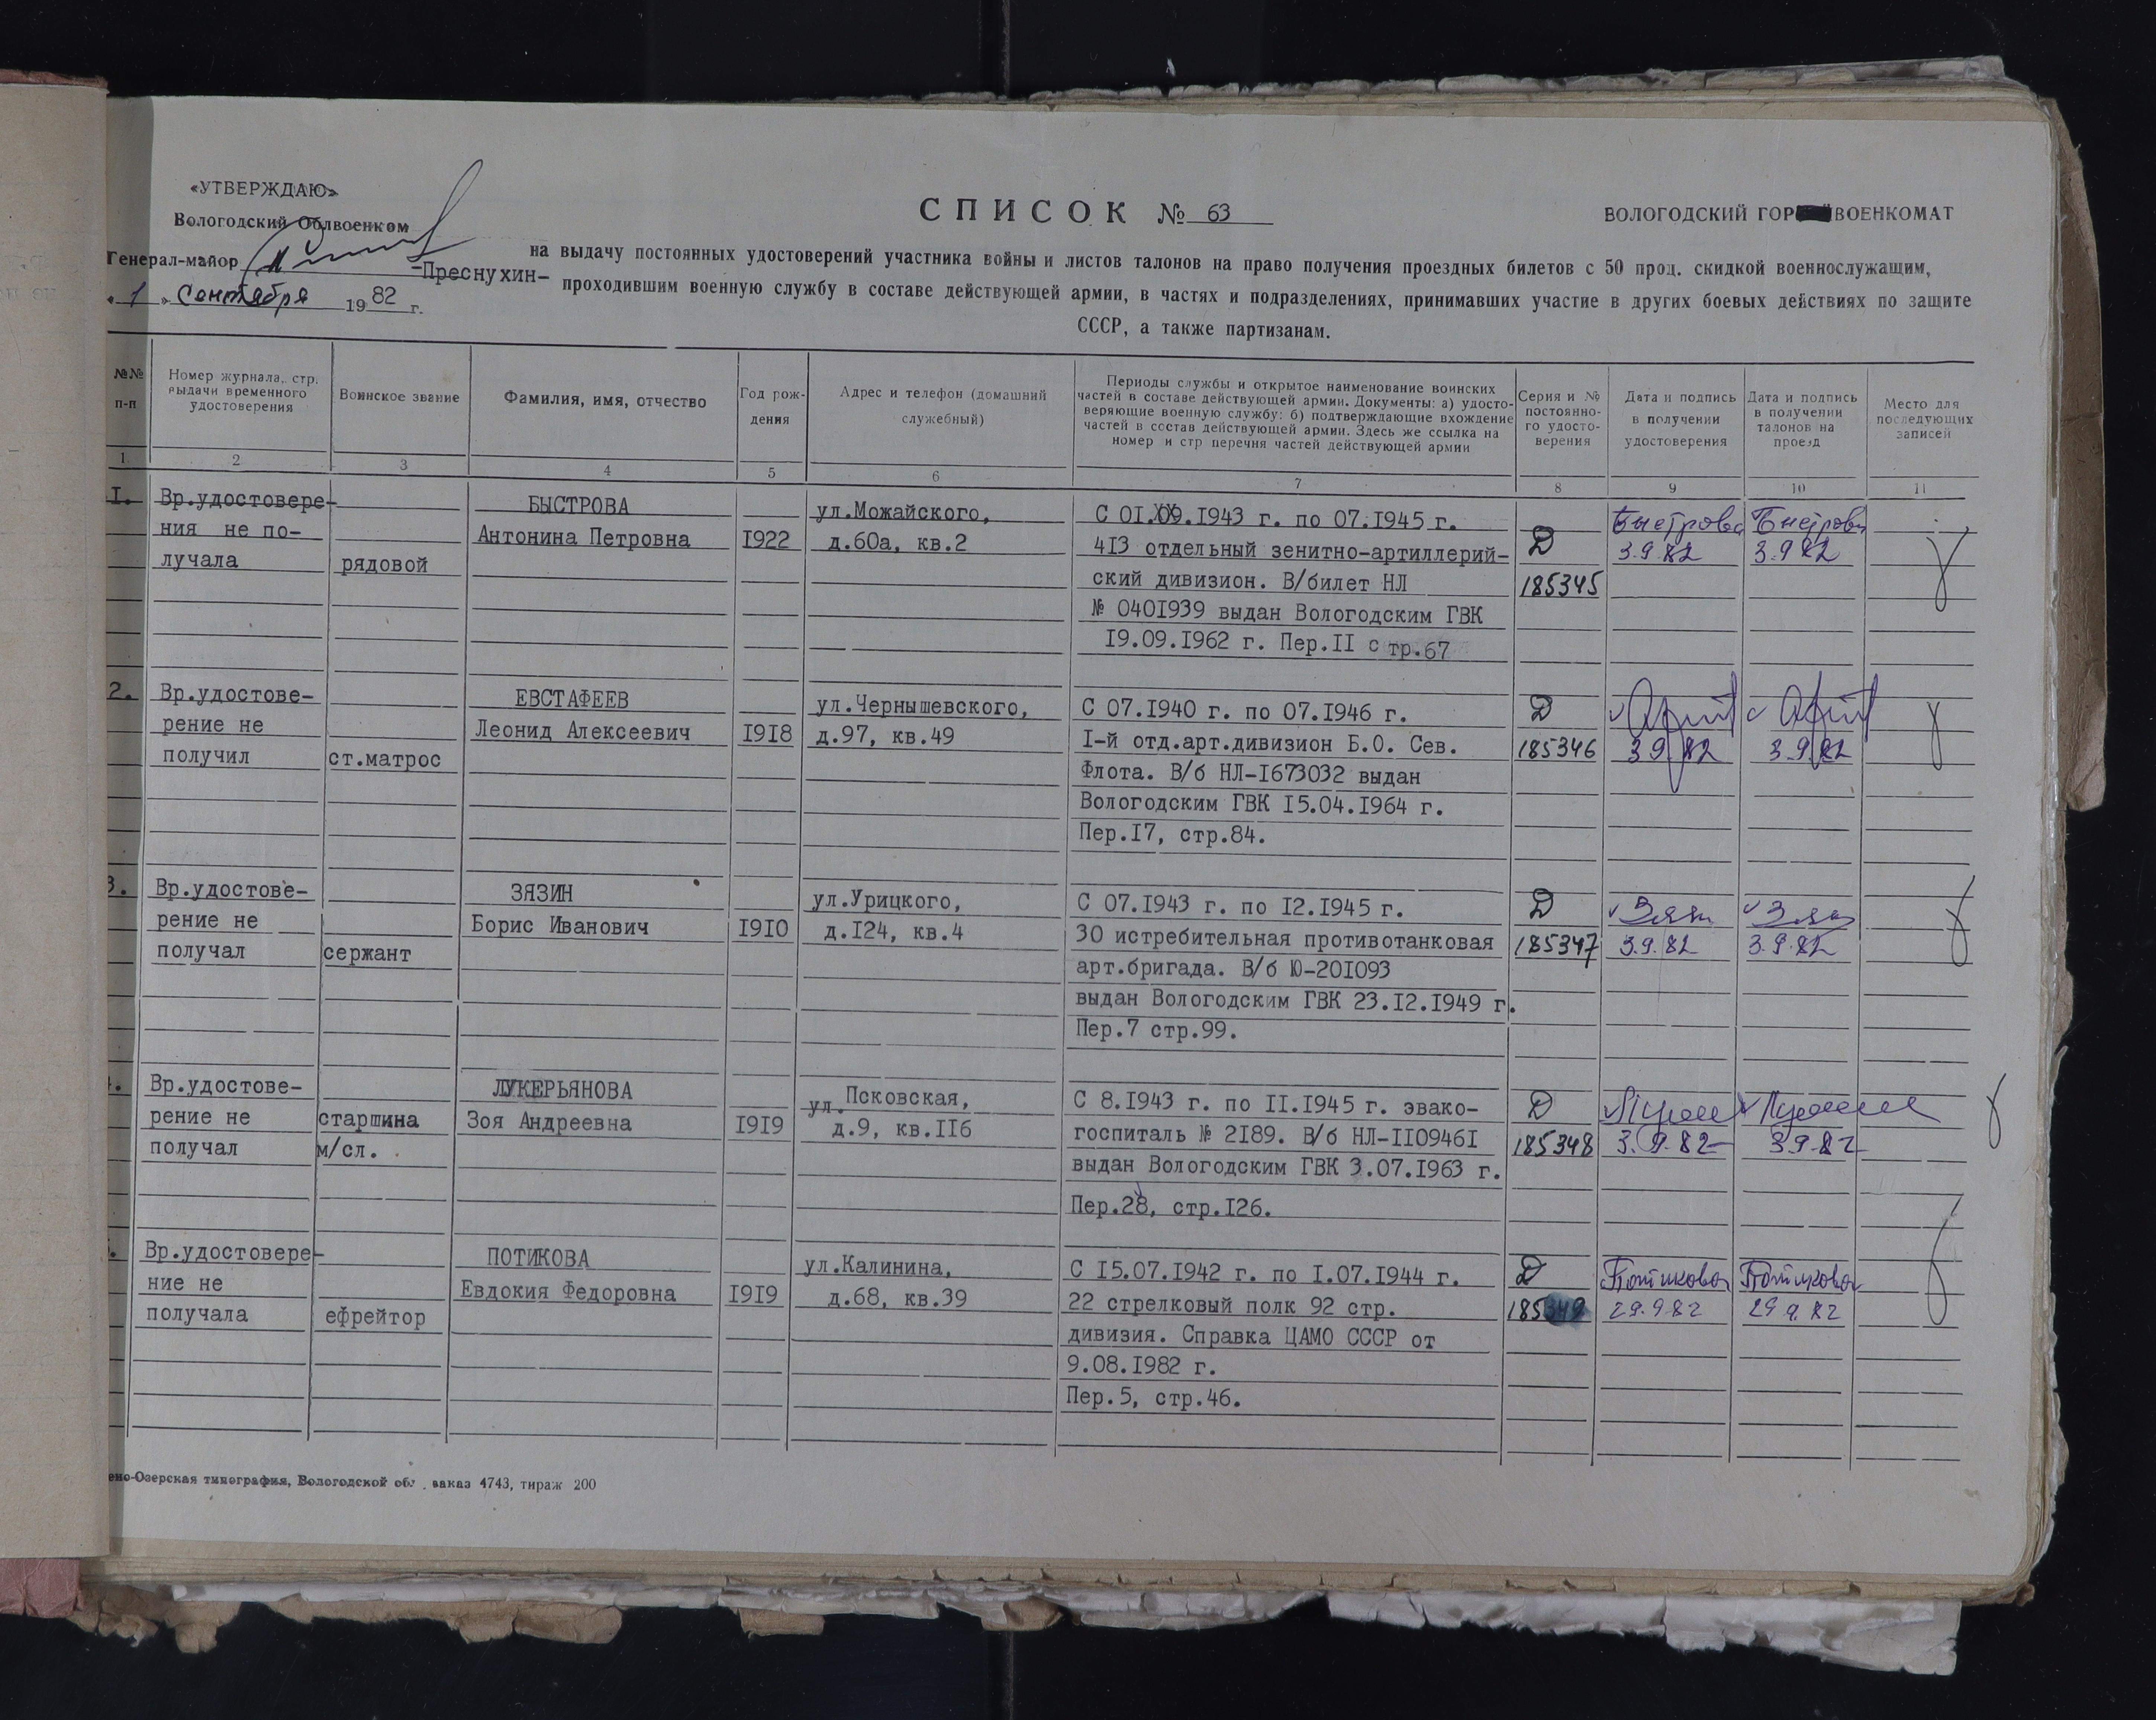 «УТВЕРЖДАЮ»
Вологодский Облвоенком
Генерал-майор
-Преснухин-
«1» Сентября 1982 г.
СПИСОК № 63
ВОЛОГОДСКИЙ ГОР ВОЕНКОМАТ
на выдачу постоянных удостоверений участника войны и листов талонов на право получения проездных билетов с 50 проц. скидкой военнослужащим,
проходившим военную службу в составе действующей армии, в частях и подразделениях, принимавших участие в других боевых действиях по защите
СССР, а также партизанам.
№№ п-п
Номер журнала, стр. выдачи временного удостоверения
Воинское звание
Фамилия, имя, отчество
Год рождения
Адрес и телефон (домашний служебный)
Периоды службы и открытое наименование воинских
частей в составе действующей армии. Документы: а) удосто-
веряющие военную службу; б) подтверждающие вхождение
частей в состав действующей армии. Здесь же ссылка на
номер и стр перечня частей действующей армии
Серия и № постоянно-го удосто-верения
Дата и подпись в получении удостоверения
Дата и подпись в получении талонов на проезд
Место для последующих записей
1 2 3 4 5 6 7 8 9 10 11
I.
Вр.удостовере-
ния не по-
лучала
рядовой
БЫСТРОВА
Антонина Петровна
I922
ул.Можайского,
д.60а, кв.2
С 0I.09.I943 г. по 07.I945 г.
4I3 отдельный зенитно-артиллерий-
ский дивизион. В/билет НЛ
№ 040I939 выдан Вологодским ГВК
I9.09.I962 г. Пер.II стр.67
Д
185345
Быстрова
3.9.82
Быстрова
3.9.82
2.
Вр.удостове-
рение не
получил
ст.матрос
ЕВСТАФЕЕВ
Леонид Алексеевич
I9I8
ул.Чернышевского,
д.97, кв.49
С 07.I940 г. по 07.I946 г.
I-й отд.арт.дивизион Б.О. Сев.
Флота. В/б НЛ-I673032 выдан
Вологодским ГВК I5.04.I964 г.
Пер.I7, стр.84.
Д
185346
3.9.82
3.9.82
3.
Вр.удостове-
рение не
получал
сержант
ЗЯЗИН
Борис Иванович
I9I0
ул.Урицкого,
д.I24, кв.4
С 07.I943 г. по I2.I945 г.
30 истребительная противотанковая
арт.бригада. В/б Ю-20I093
выдан Вологодским ГВК 23.I2.I949 г.
Пер.7 стр.99.
Д
185347
3.9.82
3.9.82
Вр.удостове-
рение не
получал
старшина
м/сл.
ЛУКЕРЬЯНОВА
Зоя Андреевна
I9I9
ул.Псковская,
д.9, кв.II6
С 8.I943 г. по II.I945 г. эвако-
госпиталь № 2I89. В/б НЛ-II0946I
выдан Вологодским ГВК 3.07.I963 г.
Пер.28, стр.I26.
Д
185348
3.9.82
3.9.82
Вр.удостовере-
ние не
получала
ефрейтор
ПОТИКОВА
Евдокия Федоровна
I9I9
ул.Калинина,
д.68, кв.39
С I5.07.I942 г. по I.07.I944 г.
22 стрелковый полк 92 стр.
дивизия. Справка ЦАМО СССР от
9.08.I982 г.
Пер.5, стр.46.
Д
185349
Потикова
29.9.82
Потикова
29.9.82
Озерская типография, Вологодской обл. заказ 4743, тираж 200